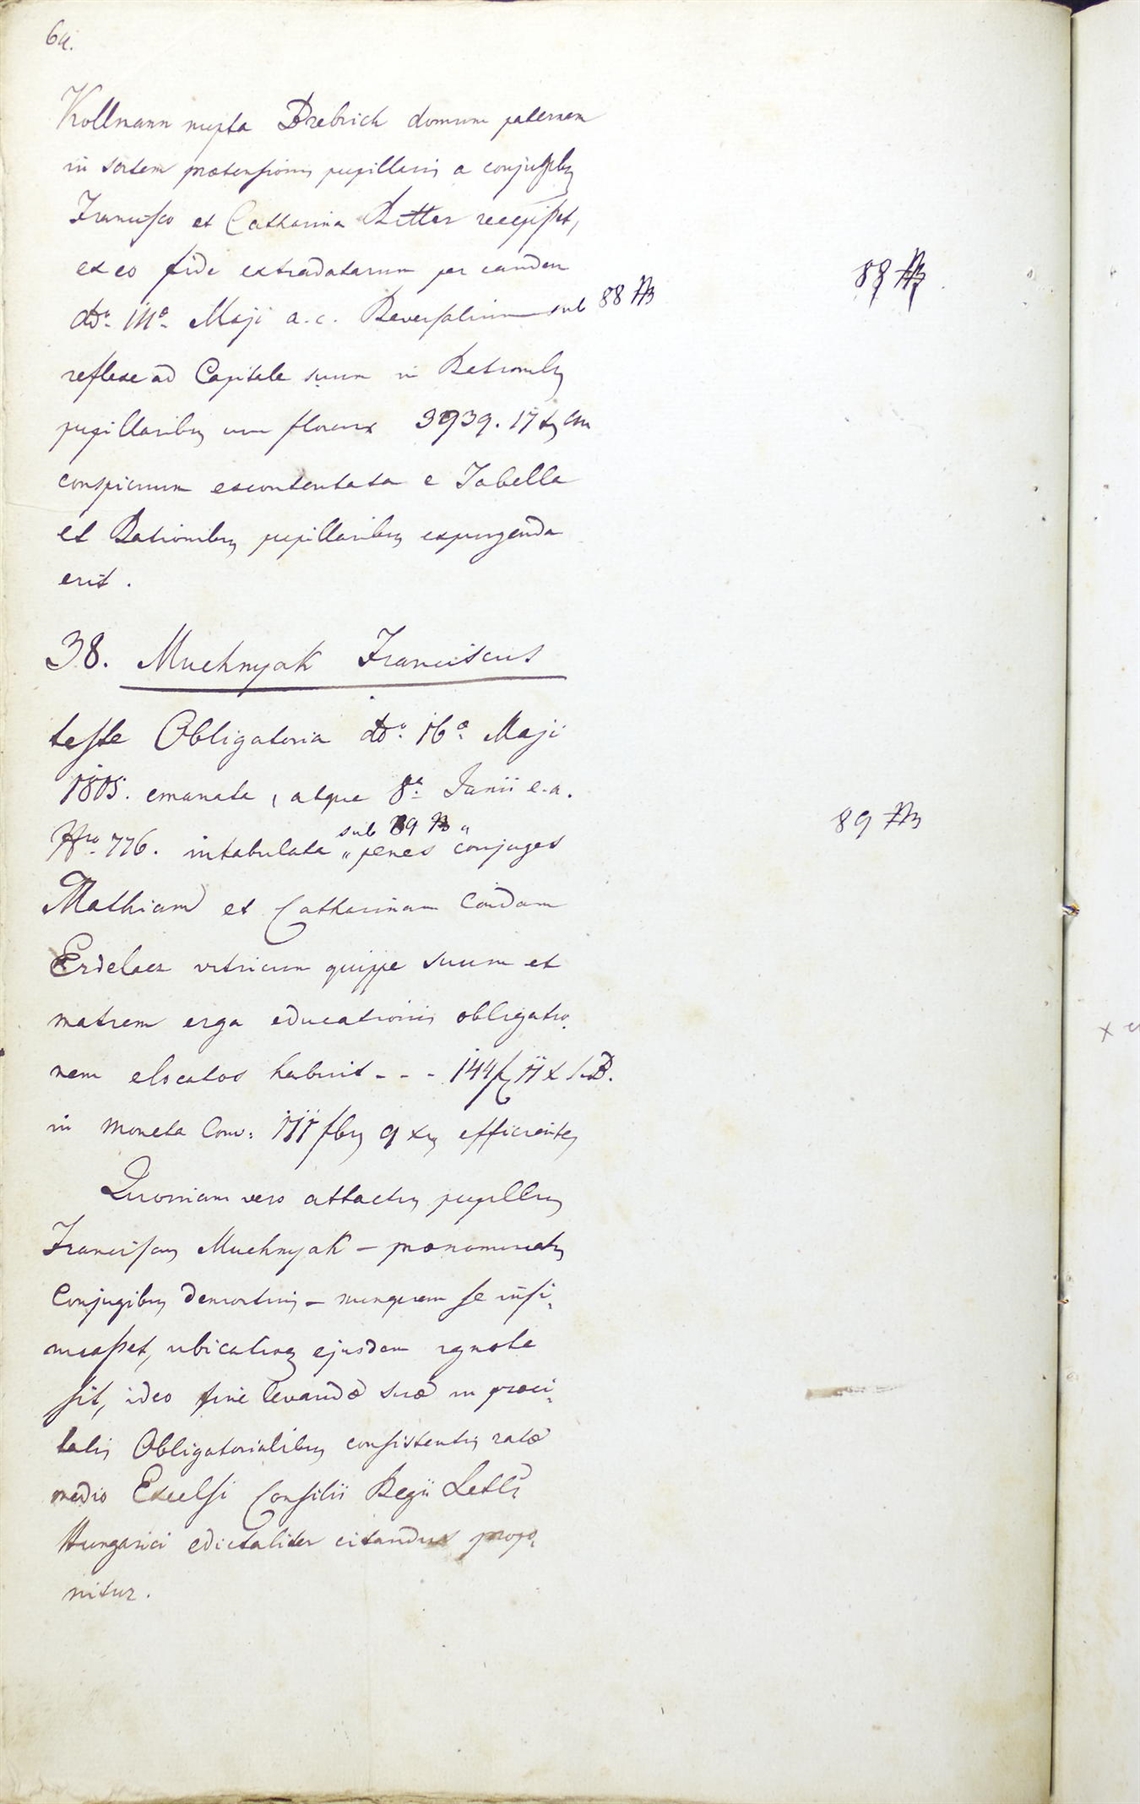 64.
Kollmann nupta Drebrich domum paternam
in sortem praetensionis pupillaris a conjugibus
Francisco et Catharina Ritter recepisset,
ex eo fide extradatarum per eandem
ddo 11a Maji a. c. Reversalium sub 88 №
88 №
reflexe ad Capitale suum in Rationibus
pupillaribus cum florenis 3939. 17 x
conspicuum excontentata e Tabella
et Rationibus pupillaribus expungenda
erit.
38. Muchnyak Franciscus
teste Obligatoria ddo 16a Maji
1805. emanata, atque 8a Junii e. a.
sub 89 №
89 №
Nro 776. intabulata „penes conjuges
Mathiam et Catharinam
Erdelacz vitricum quippe suum et
matrem erga educationis obligatio-
nem elocatos habuit - - - 144 f 11 x
in moneta Conv: 111 fbus 9 xr efficientes
Quoniam vero attactus pupillus
Franciscus Muchnyak – praenominatis
Conjugibus demortuis – nunquam se insi-
nuasset, ubicatioque ejusdem ignota
sit, ideo fine levandae suae in praeci-
tatis Obligatorialibus consistentis ratae
medio Excelsi Consilii Regii Lottis
Hungarici edictaliter citandus propo-
nitur.